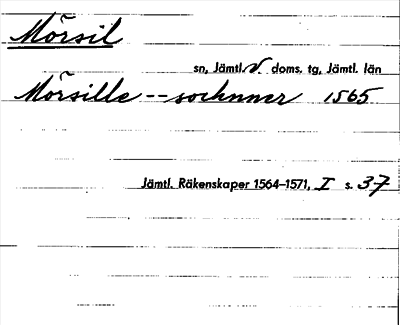 Mörsil
sn, Jämtl. v. doms. tg, Jämtl. län
Mörsille -- sochnner 1565
Jämtl. Räkenskaper 1564–1571, I s. 37